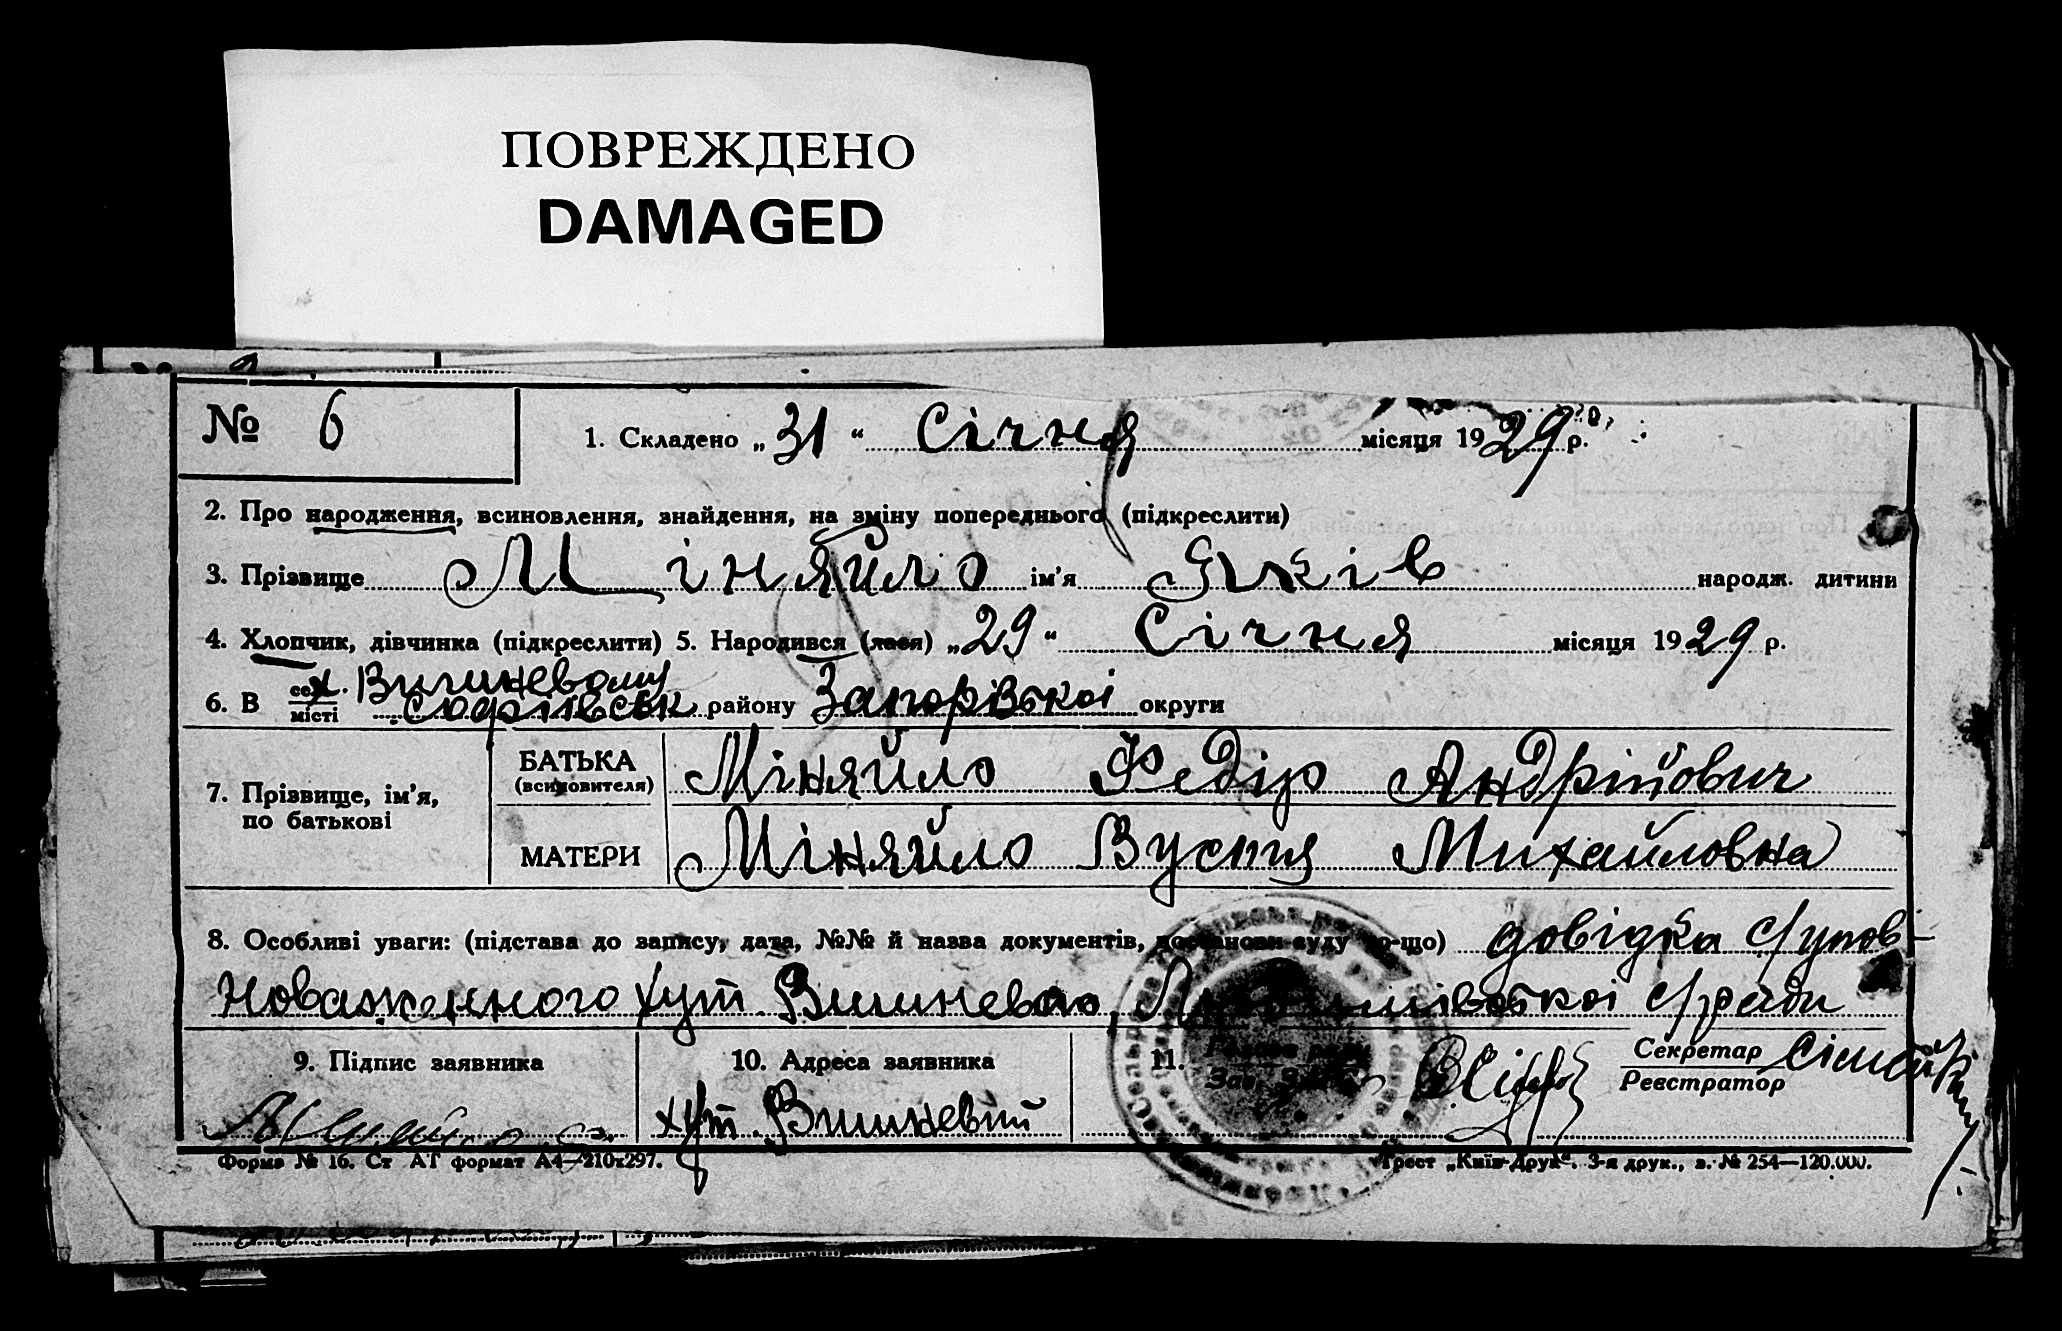 ПОВРЕЖДЕНО
DAMAGED
№ 6
1. Складено „31“ Січня місяця 1929 р.
2. Про народження, всиновлення, знайдення, на зміну попереднього (підкреслити)
3. Прізвище Міняйло ім’я Яків народж. дитини
4. Хлопчик, дівчинка (підкреслити) 5. Народився (лася) „29“ Січня місяця 1929 р.
х. Вишневому
6. В місті Софіївськ району Запорізької округи
7. Прізвище, ім’я, по батькові
БАТЬКА (всиновителя) Міняйло Федір Андрійович
МАТЕРИ Міняйло Вустя Михайловна
8. Особливі уваги: (підстава до запису, дата, №№ й назва документів, постанови суду що-що) довідка с/упов-
новаженного хут. Вишневого, с/ради
9. Підпис заявника
10. Адреса заявника
11.
Секретар
Реєстратор
хут. Вишневий
Форма № 16. Ст АТ формат А4—210х297.
Трест „Київ-Друк“. 3-я друк., з. № 254—120.000.